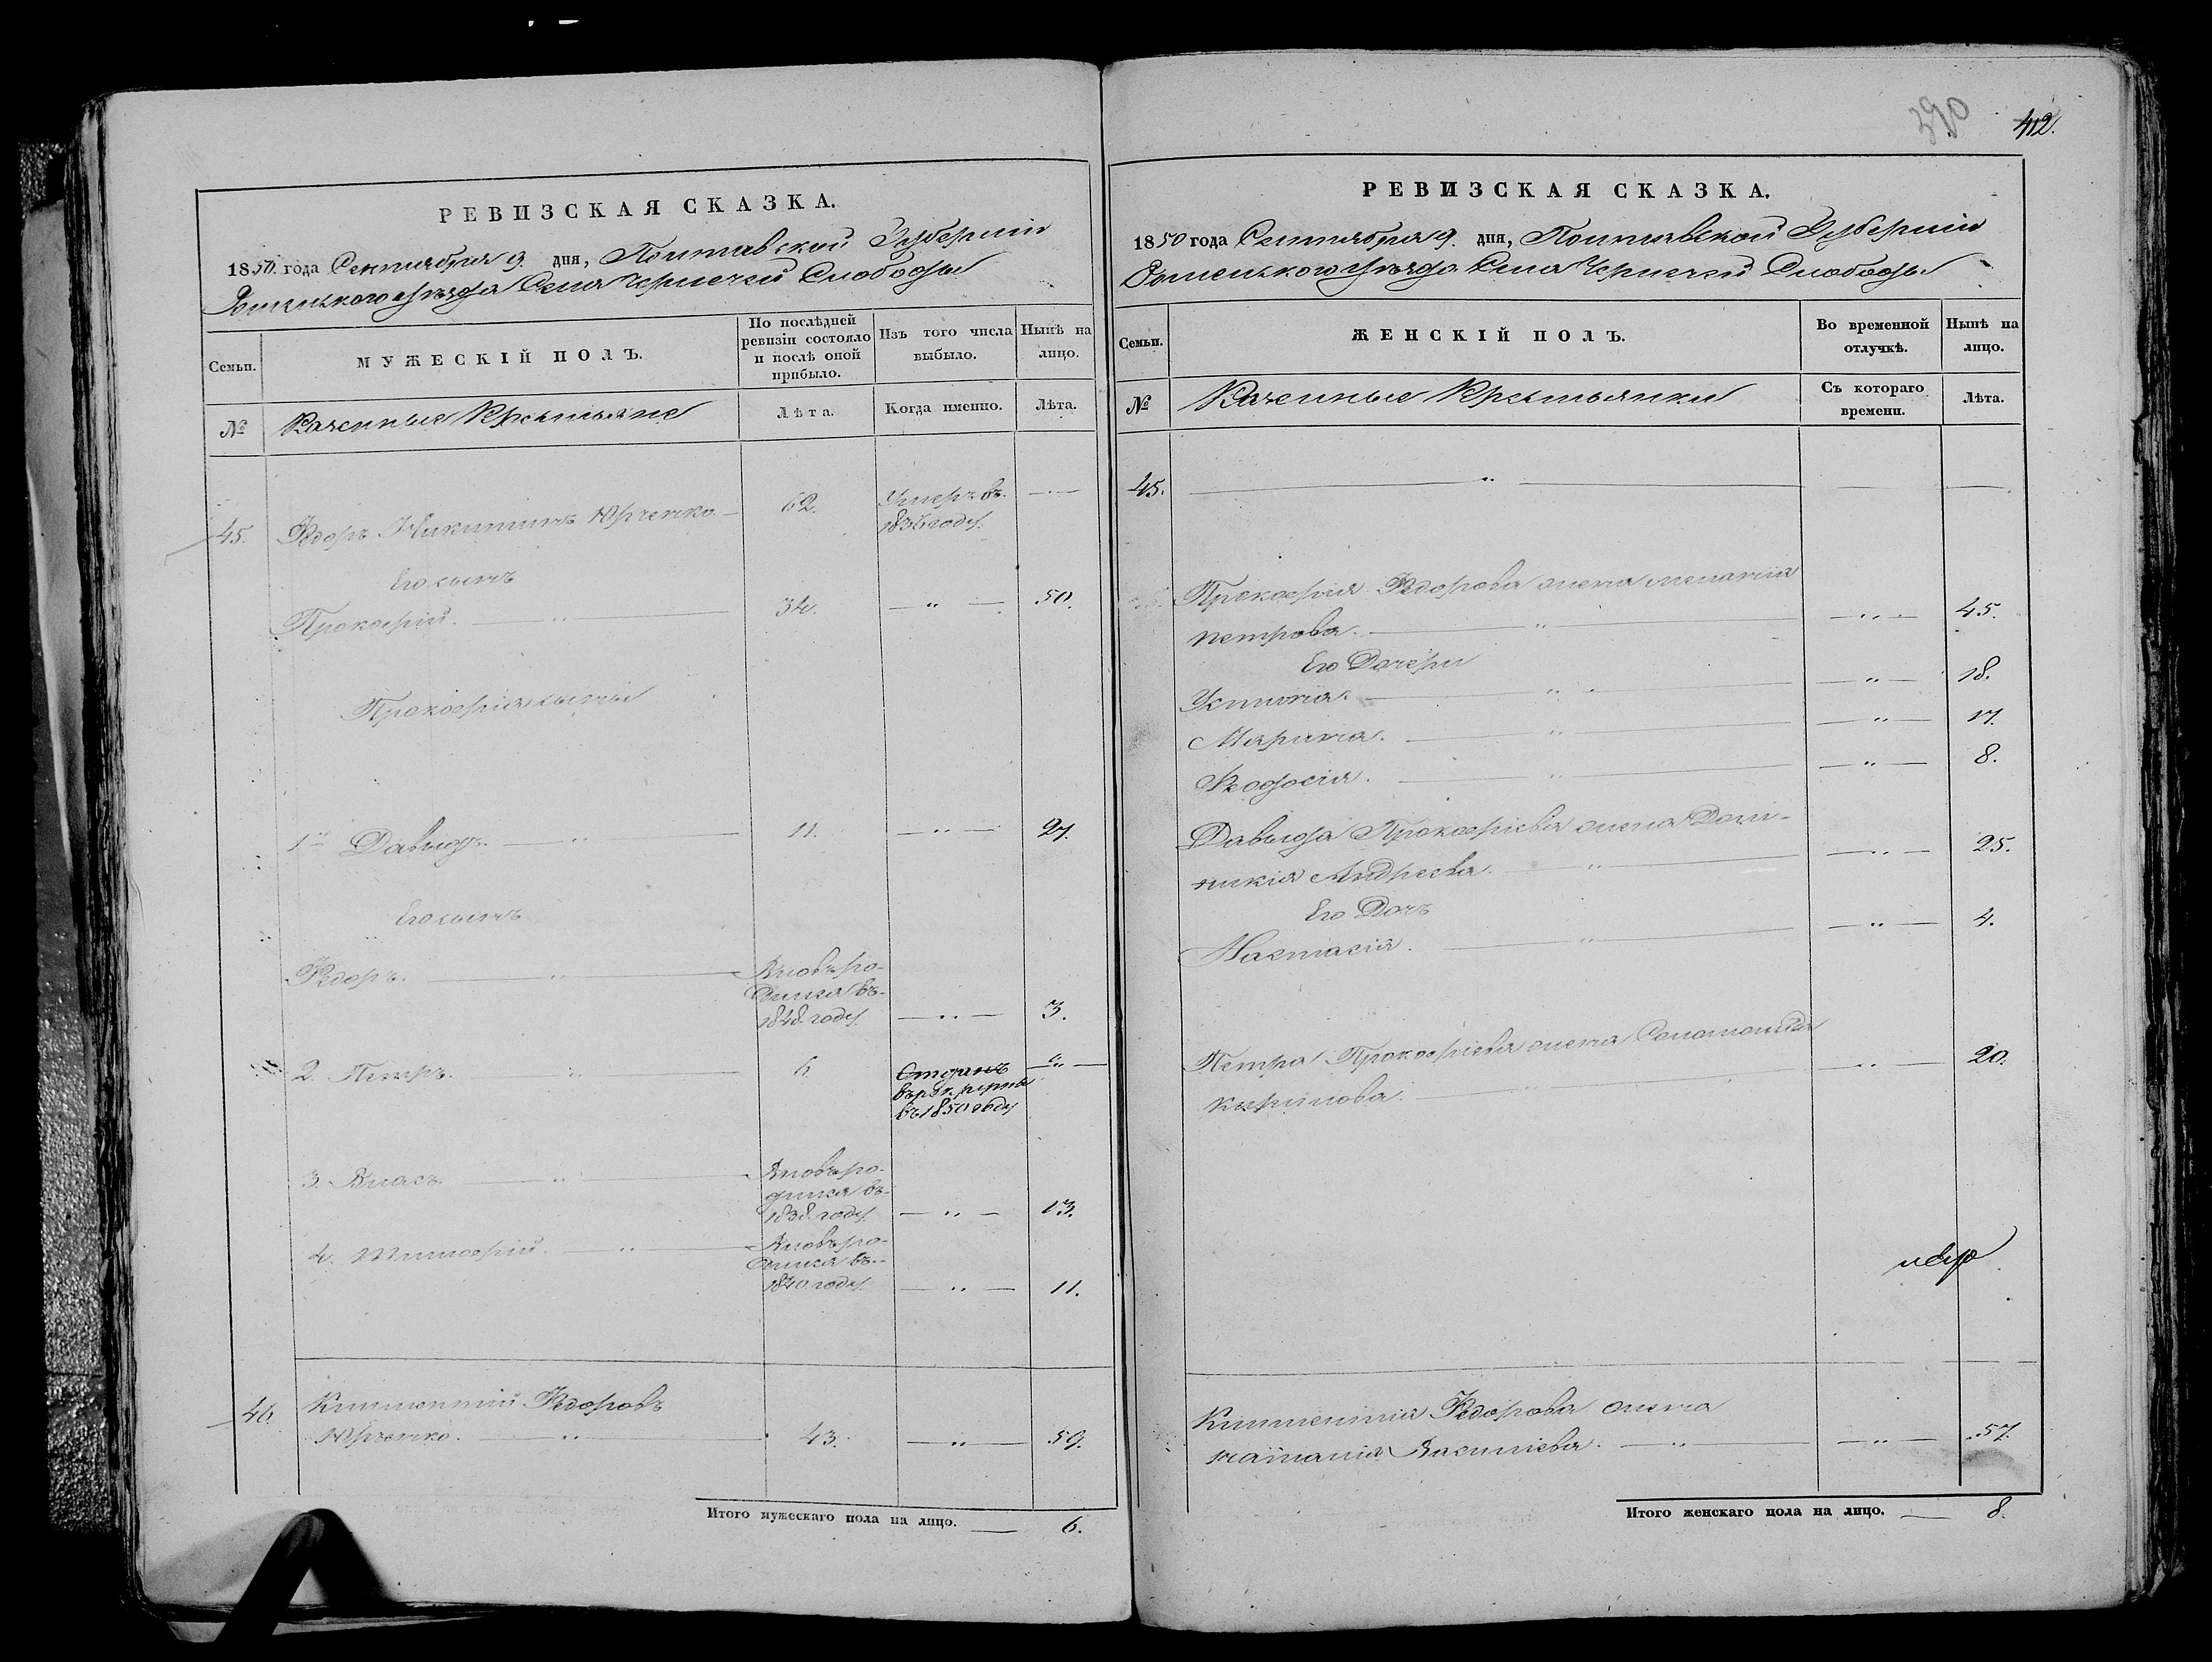 390
412.
РЕВИЗСКАЯ СКАЗКА.
1850 года Сентября 9. дня, Полтавской Губерніи
Роменского уѣзда Села Чернечей Слободы
Семьи.
МУЖЕСКІЙ ПОЛЪ.
По послѣдней ревизіи состояло и послѣ оной прибыло.
Изъ того числа выбыло.
Нынѣ на лицо.
№
Казенные Крестьяне
Лѣта.
Когда именно.
Лѣта.
45. Федоръ Никитинъ Юрченко — 62. Умеръ въ
1836 году.
Его сынъ
Прокофій. — " — 34. — " — 50.
Прокофія сыны
1й Давыдъ. — " — 11. — " — 27.
Его сынъ
Федоръ. — " — Вновь ро-
дился въ
1848. году. — " — 3.
2. Петръ. " — 6. Отданъ — " —
въ рекруты
въ 1850 году
3. Власъ. — " — Вновь ро-
дился въ
1838. году. — " — 13.
4. Тимофій. " — Вновь ро-
дился въ
1840 году. — " — 11.
46. Климентій Федоровъ
Юрченко. — " — 43. — " — 59.
Итого мужескаго пола на лицо. — 6.
РЕВИЗСКАЯ СКАЗКА.
1850 года Сентября 9. дня, Полтавской Губерніи
Роменского уѣзда Села Чернечей Слободы
Семьи.
ЖЕНСКІЙ ПОЛЪ.
Во временной отлучкѣ.
Нынѣ на лицо.
№
Казенные Крестьянки
Съ котораго времени.
Лѣта.
45. — " —
Прокофія Федорова жена Меланія
Петрова. — " — — " — 45.
Его Дочери
Устина. — " — — " — 18.
Марина. — " — — " — 17.
Феодосія. — " — — " — 8.
Давыда Прокофіева жена Доми-
никія Андреева. — " — — " — 25.
Его Дочь
Настасія. — " — — " — 4.
Петра Прокофіева жена Соломонида
Кирилова. — " — — " — 20.
Климентія Федорова жена
Василіева. — " — — " — 57.
Итого женскаго пола на лицо. — 8.